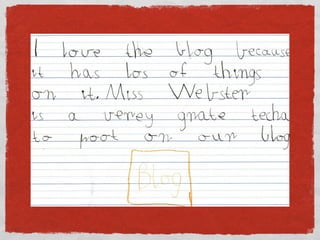 I love the blog because
it has los of things
on it. Miss Webster
is a verey grate techa
to poot on our blog
Blog